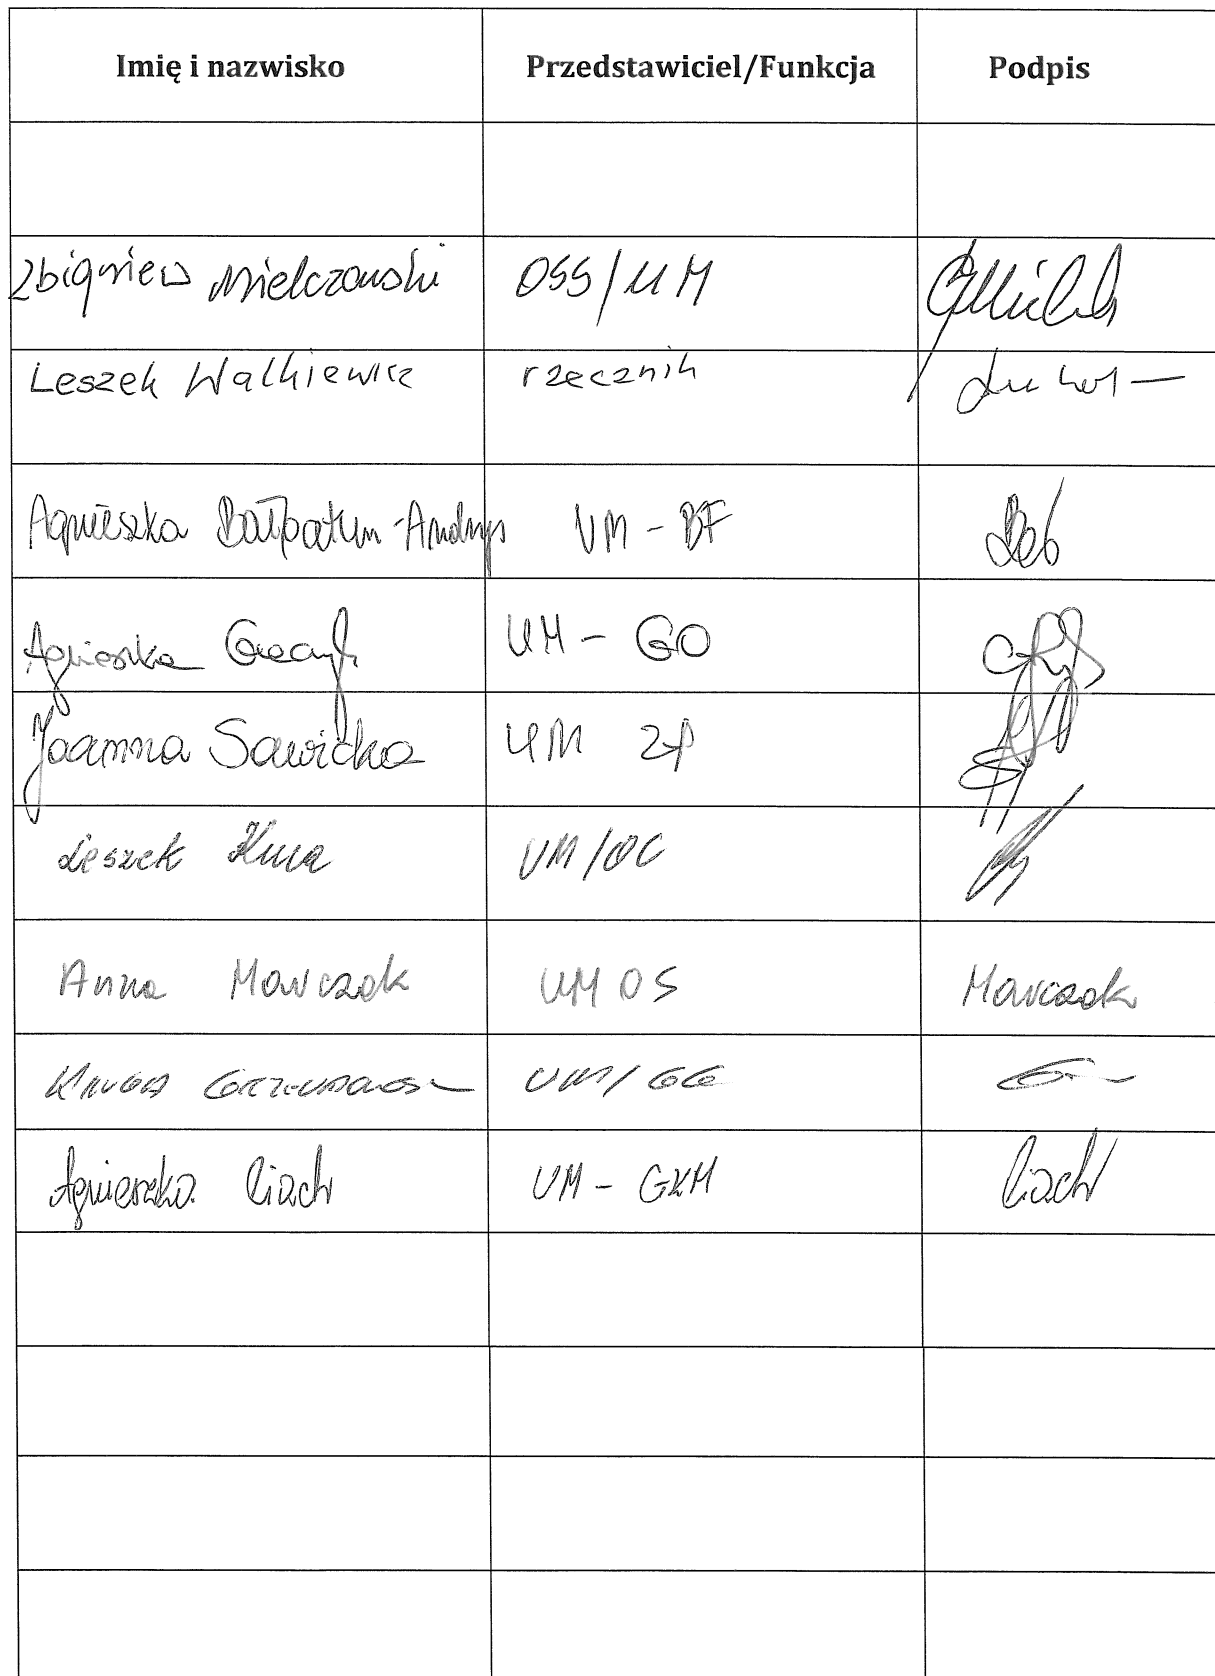 Imię i nazwisko Przedstawiciel/Funkcja Podpis
Zbigniew Mielczarski OSS/UM
Leszek Walkiewicz rzecznik
Agnieszka UM - BF
Agnieszka UM - GO
Joanna Sawicka UM ZP
Leszek UM/OC
Anna Marczak UM OS Marczak
UM/GG
Agnieszka Ciach UM - GKM Ciach